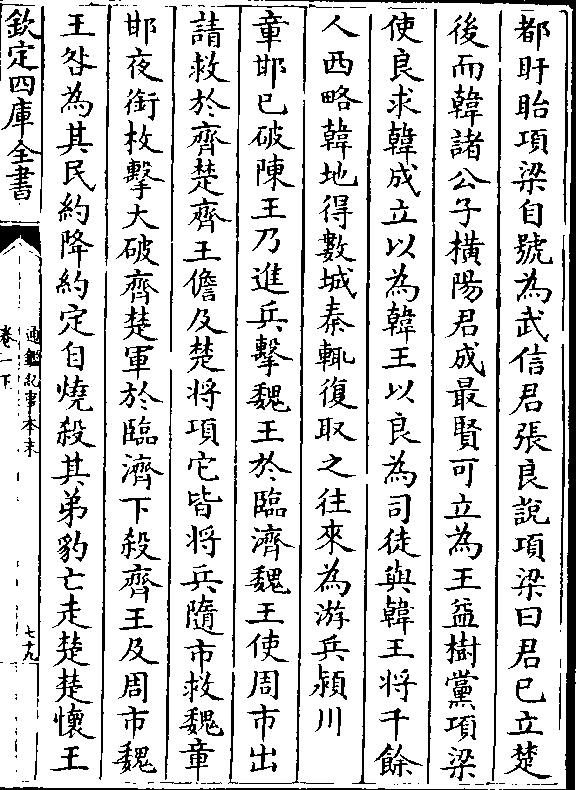 都盱眙項梁自號為武信君張良說項梁曰君已立楚
後而韓諸公子橫陽君成最賢可立為王益樹黨項梁
使良求韓成立以為韓王以良為司徒與韓王將千餘
人西略韓地得數城秦輒復取之往來為游兵潁川
章邯已破陳王乃進兵擊魏王於臨濟魏王使周市出
請救於齊楚齊王儋及楚将項它皆将兵隨市救魏章
邯夜銜枚擊大破齊楚軍於臨濟下殺齊王及周市魏
王咎為其民約降約定自燒殺其弟豹亡走楚楚懷王
欽定四庫全書
通鑑紀事本末
卷一下
七九